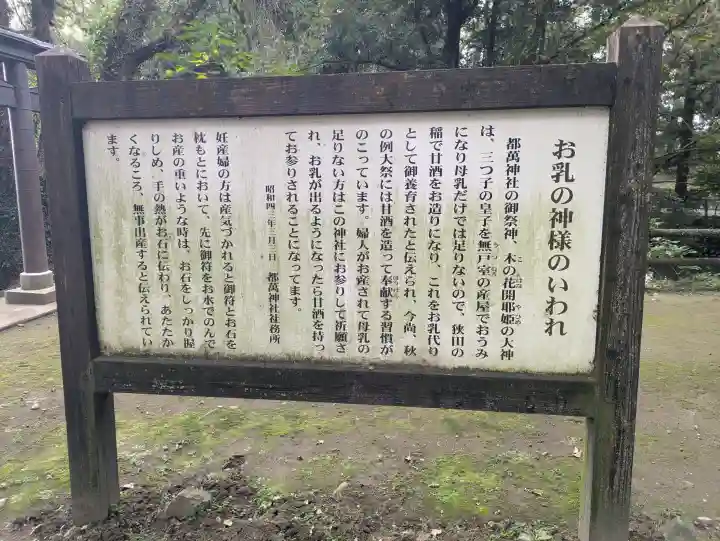 お乳の神様のいわれ
都萬神社の御祭神、木の花開耶姫の大神
は、三つ子の皇子を無戸室の産屋でおうみ
になり母乳だけでは足りないので、狭田の
稲で甘酒をお造りになり、これをお乳代り
として御養育されたと伝えられ、今尚、秋
の例大祭には甘酒を造って奉献する習慣が
のこっています。婦人がお産されて母乳の
足りない方はこの神社にお参りして祈願さ
れ、お乳が出るようになったら甘酒を持っ
てお参りされることになってます。
昭和四三年三月三日 都萬神社社務所
妊産婦の方は産気づかれると御符とお石を
枕もとにおいて、先に御符をお水でのんで
お産の重いような時は、お石をしっかり握
りしめ、手の熱がお石に伝わり、あたたか
くなるころ、無事出産すると伝えられてい
ます。